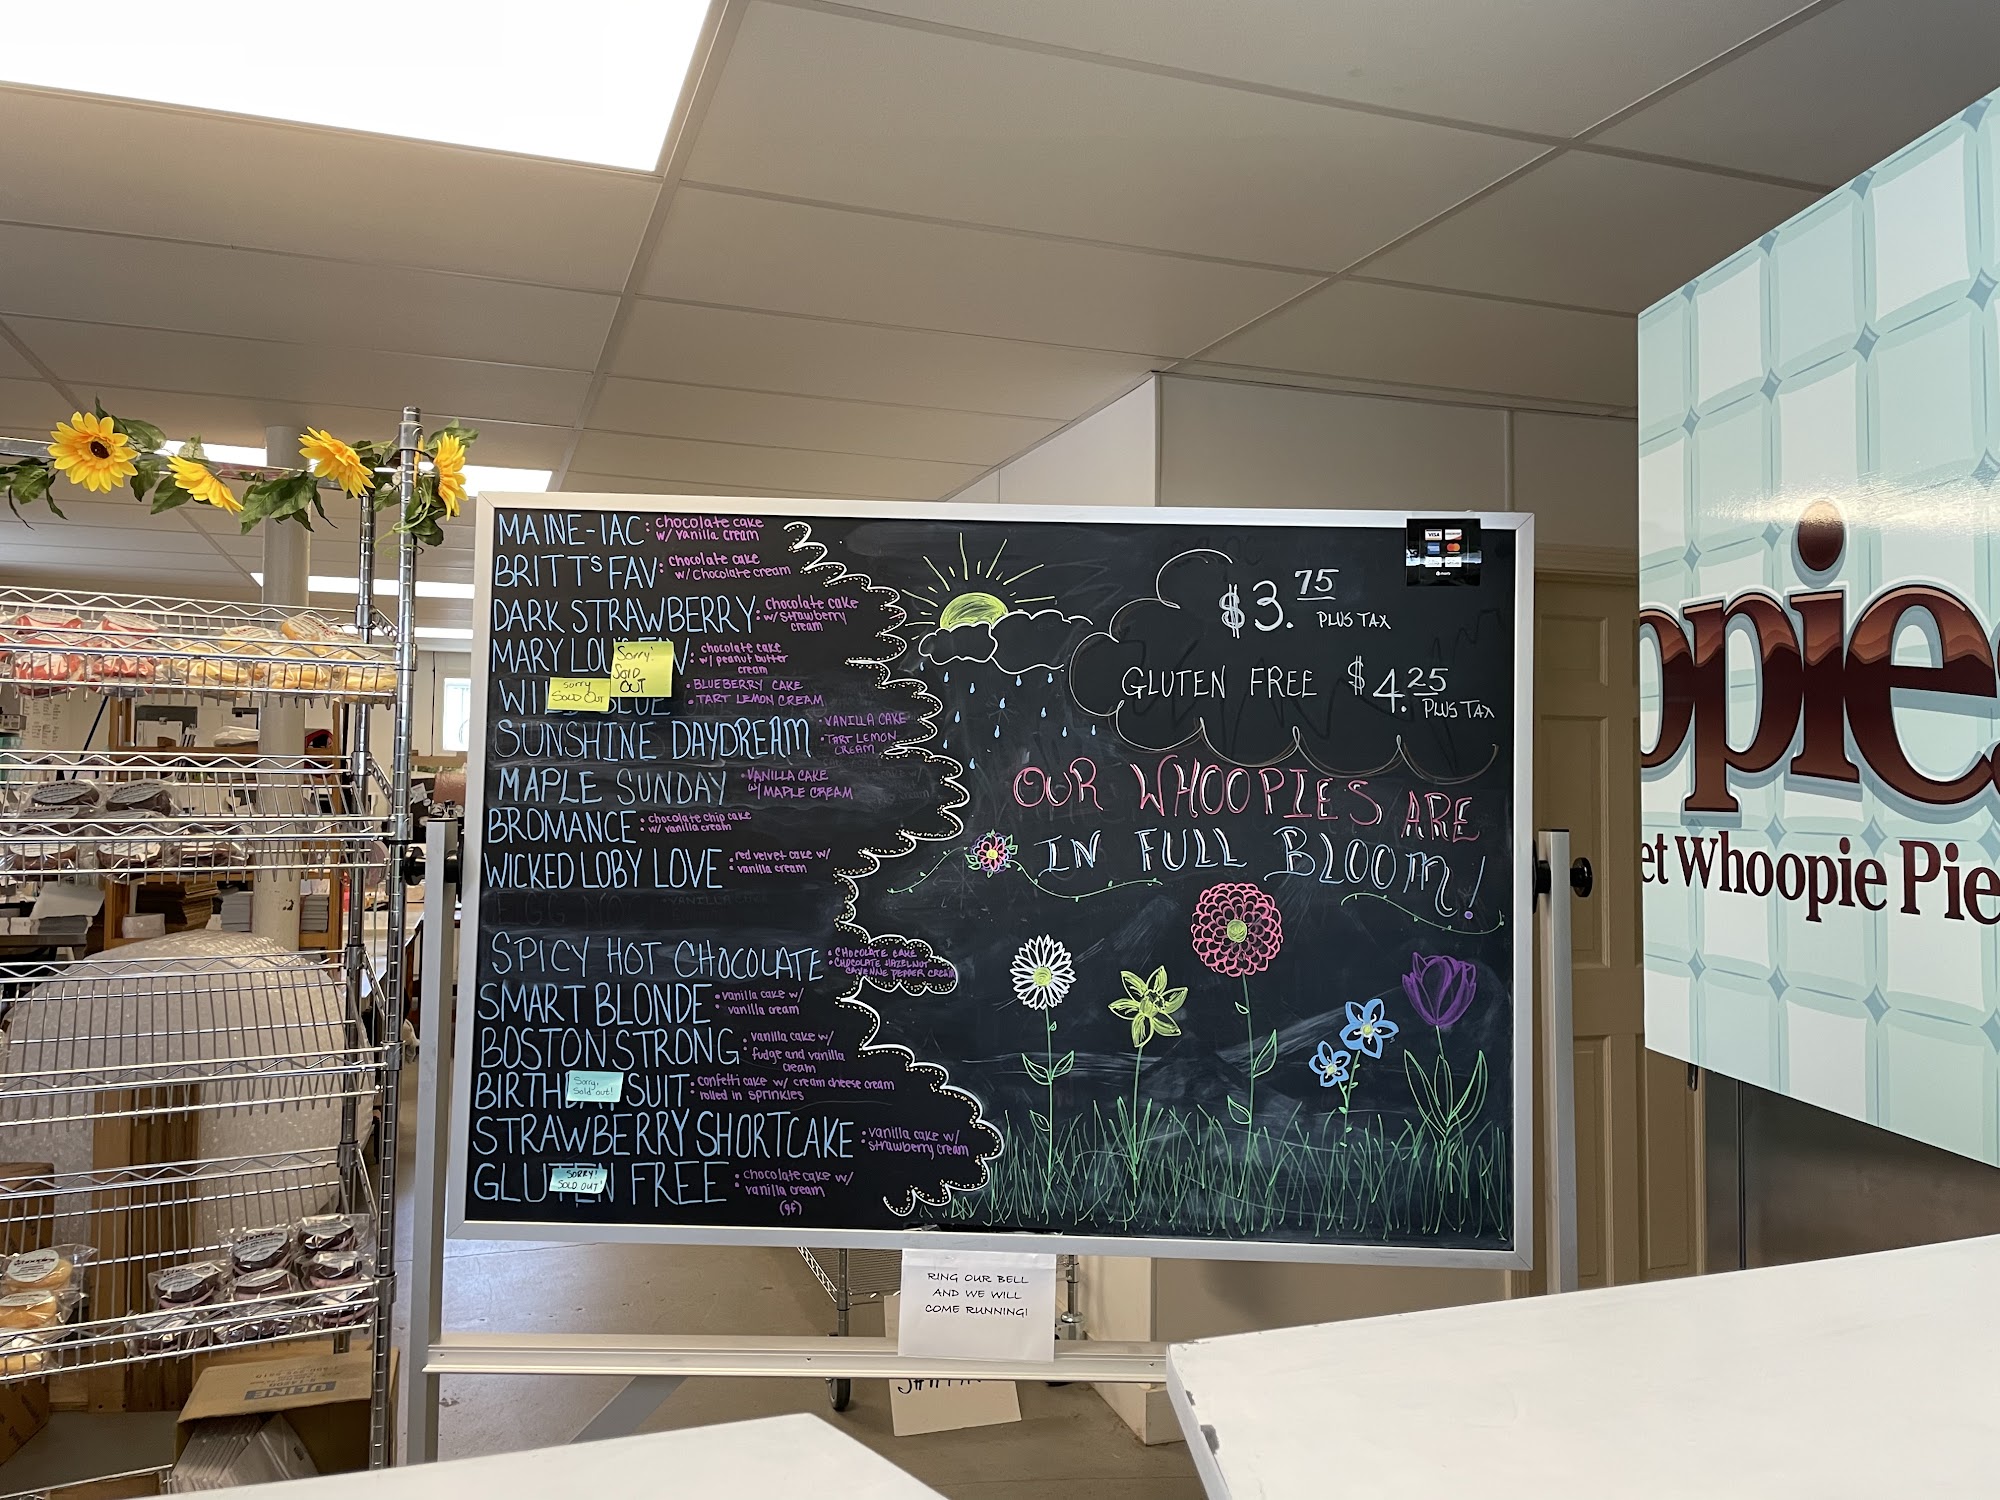 MAINE-IAC: chocolate cake
w/ vanilla cream
BRITT'S FAV: chocolate cake
w/ chocolate cream
DARK STRAWBERRY: chocolate cake
w/ strawberry
cream
MARY LOU'S : chocolate cake
w/ peanut butter
cream
Sorry!
SOLD
OUT
WILD BLUE • BLUEBERRY CAKE
• TART LEMON CREAM
Sorry
SOLD OUT
SUNSHINE DAYDREAM • VANILLA CAKE
• TART LEMON
CREAM
MAPLE SUNDAY • VANILLA CAKE
w/ MAPLE CREAM
BROMANCE • chocolate chip cake
• w/ vanilla cream
WICKED LOBY LOVE • red velvet cake w/
• vanilla cream
EGG NO
• VANILLA
SPICY HOT CHOCOLATE • CHOCOLATE CAKE
• CHOCOLATE HAZELNUT
CAYENNE PEPPER CREAM
SMART BLONDE • vanilla cake w/
vanilla cream
BOSTON STRONG • vanilla cake w/
fudge and vanilla
cream
BIRTHDAY SUIT • confetti cake w/ cream cheese cream
• rolled in sprinkles
Sorry,
Sold out!
STRAWBERRY SHORTCAKE • vanilla cake w/
• strawberry cream
GLUTEN FREE • chocolate cake w/
• vanilla cream
(gf)
SORRY!
SOLD OUT
$3.75
PLUS TAX
GLUTEN FREE $4.25
PLUS TAX
OUR WHOOPIES ARE
IN FULL BLOOM!
VISA
RING OUR BELL
AND WE WILL
COME RUNNING!
opies
et Whoopie Pie
ULINE